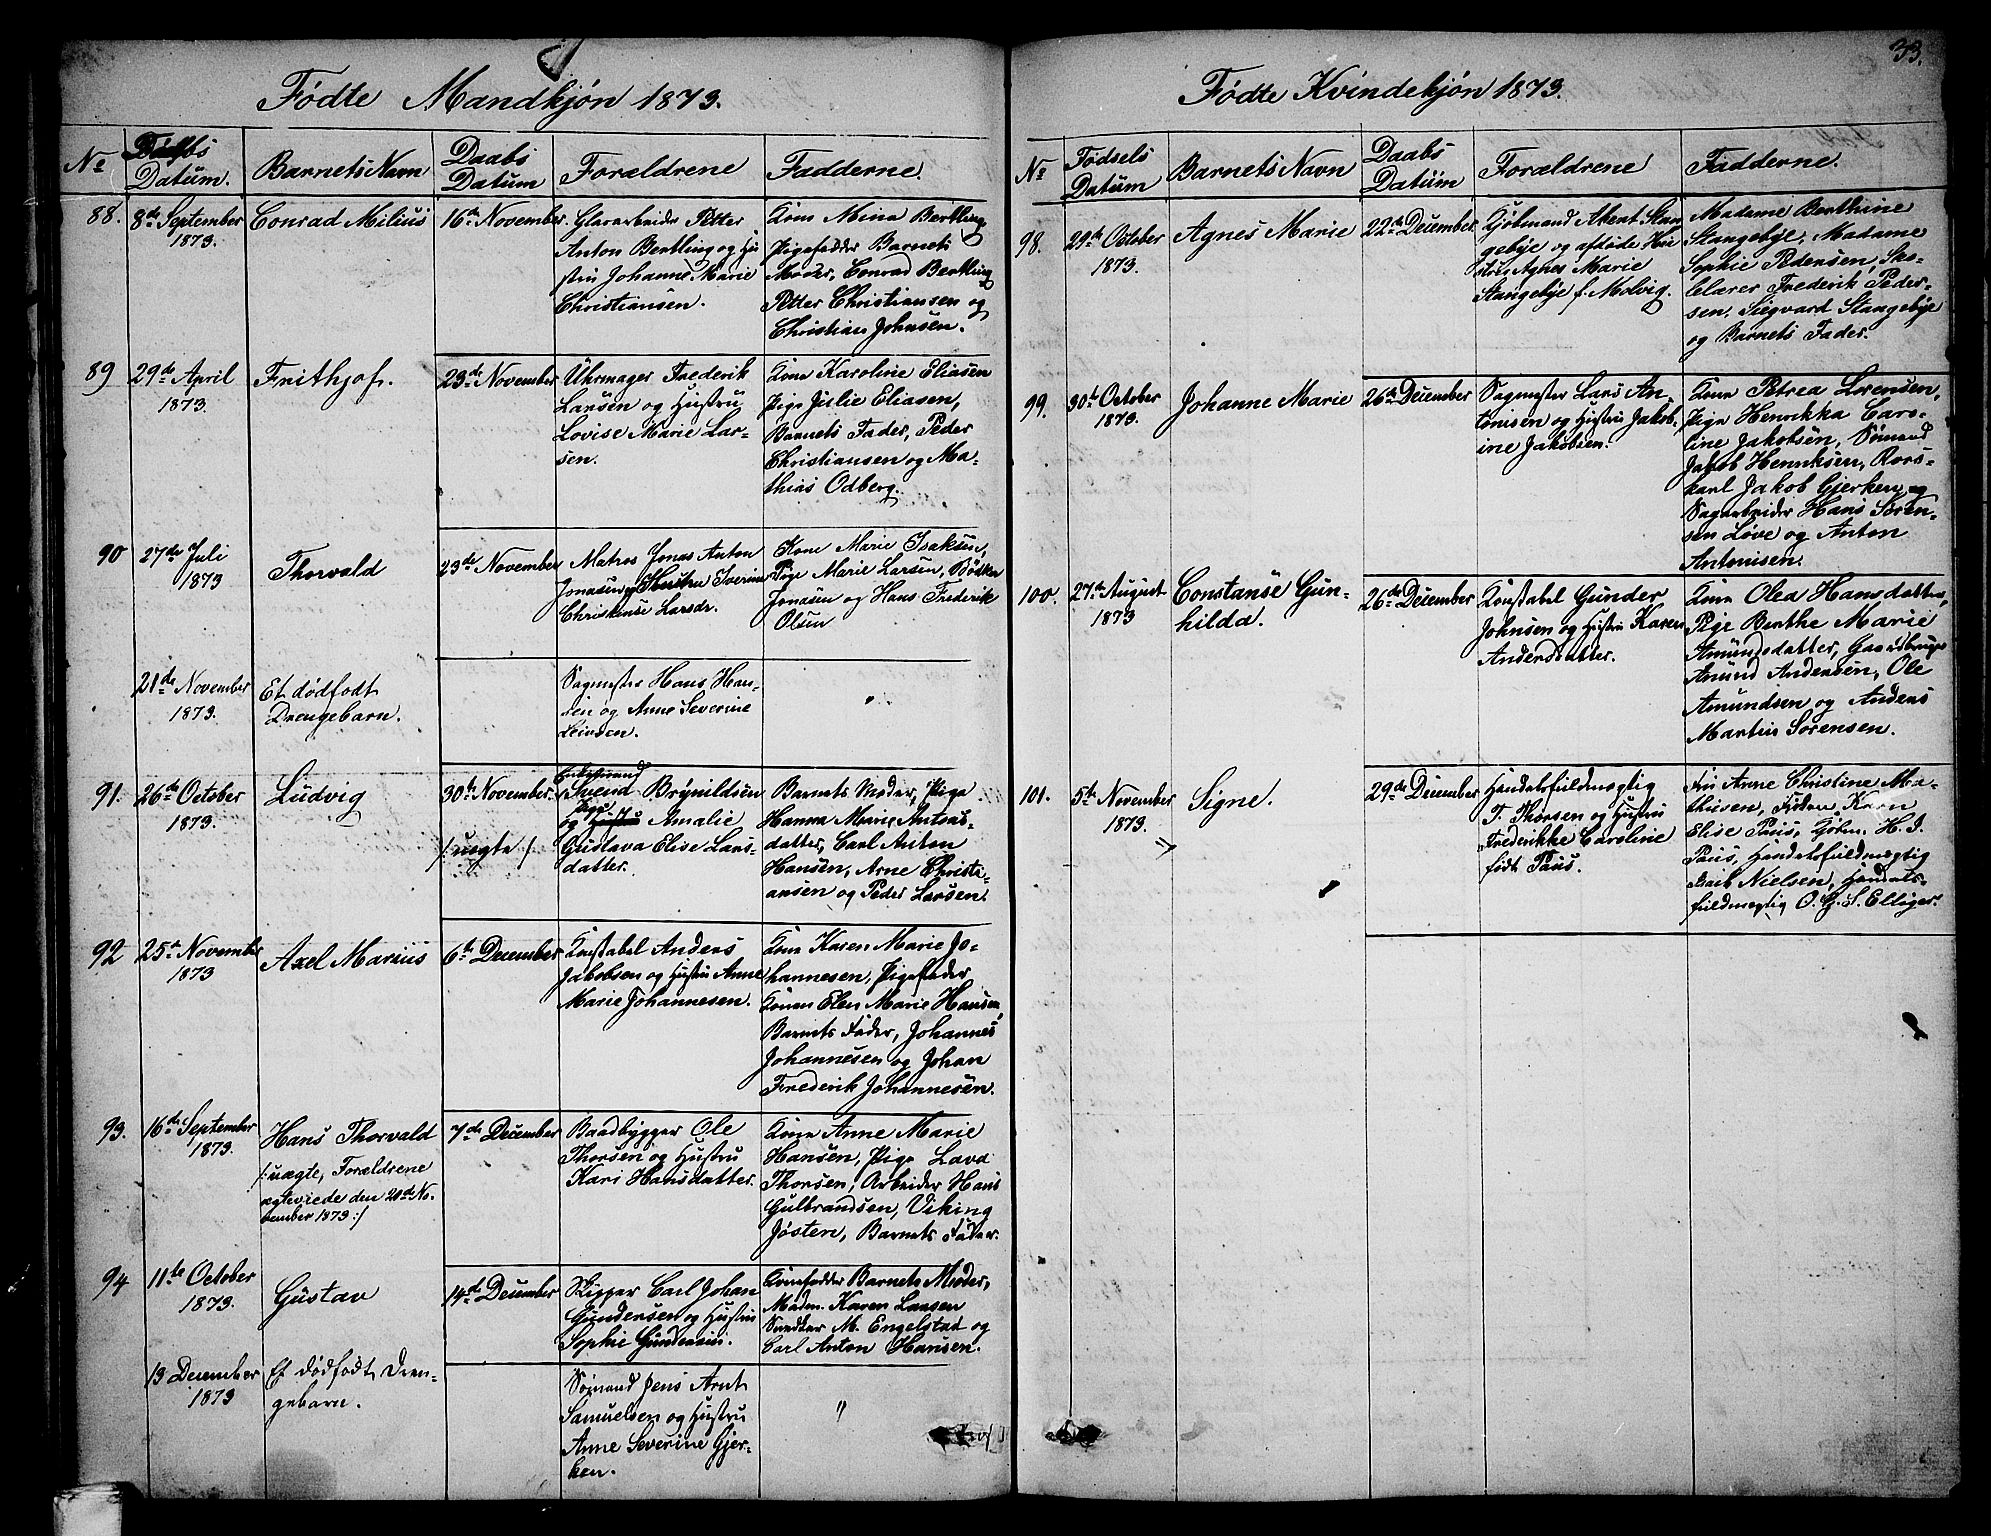 Fødte Mandkjøn 1873.
No
Datum.
Barnets Navn
Daabs
Datum
Forældrene
Fadderne.
88.
8de September
1873.
Conrad Milius
16de November
Glarabeider Petter
Anton Bertling og Hu
stru Johanne Marie
Christiansen.
Kone Mina Bertling
Pigefadder Barnets
Moder, Conrad Bertling
Petter Christiansen og
Christian Johnsen.
89
29de April
1873.
Frithjof.
23de November
Uhrmager Frederik
Larsen og Hustru
Lovise Marie Lar-
sen.
Kone Karoline Eliasen
Pige Julie Eliasen,
Barnets Fader, Peder
Christiansen og Ma-
thias Odberg.
90
27de Juli
1873
Thorvald
23de November
Matros Jonas Anton
Jonasen og Hustru Iverine
Christense Larsdr.
Kone Marie Isaksen,
Pige Marie Larsen, Bødker
Jonasen og Hans Frederik
Olsen
21de November
1873.
Et dødfødt
Drengebarn.
Sagmester Hans Han-
sen og Anne Severine
91.
26de October
1873.
Ludvig
30te November.
/: uægte :/
Enkemand
Svend Brynildsen
Pige
og Hustru Amalie
Gustava Elise Lars-
datter.
Barnets Moder, Pige
Hanna Marie Antons-
datter, Carl Anton
Hansen, Arne Christi-
ansen og Peder Larsen.
92
25de November
1873
Axel Marius
6te December
Konstabel Anders
Jakobsen og Hustru Anne
Marie Johannesen.
Kone Karen Marie Jo-
hannesen, Pigefader
Konen Elen Marie Hansen,
Barnets Fader, Johannes
Johannesen og Johan
Frederik Johannesen.
93.
16de September
1873.
Hans Thorvald
/: uægte, Forældrene
ægteviede den 20de No-
vember 1873 :/
7de December
Baadbygger Ole
Thorsen og Hustru
Kari Hansdatter.
Kone Anne Marie
Hansen, Pige Lava
Thorsen, Arbeider Hans
Gulbrandsen, Viking
Jøsten, Barnets Fader.
94
11te October
1873.
Gustav
14de December
Skipper Carl Johan
Gundersen og Hustru
Sophie Gundersen.
Konefadder Barnets Moder,
Madm. Karen Laasen
Snedker M. Engelstad og
Carl Anton Hansen.
13 December
1873
Et dødfødt Dren-
gebarn.
Sømand Jens Arnt
Samuelsen og Hustru
Anne Severine Gjer-
ken.
"
33.
Fødte Kvindekjøn 1873.
No
Fødsels
Datum
Barnets Navn
Daabs
Datum
Forældrene
Fadderne.
98.
29de October
1873.
Agnes Marie
22de December
Kjøbmand Akent Stan
gebye og afdøde Hu
stru Agnes Marie
Stangebye f. Molvig.
Madame Berthine
Stangebye, Madame
Sophie Pedersen, Sko-
lelærer Frederik Peder-
sen, Siegvard Stangebye
og Barnets Fader.
99.
30te October
1873.
Johanne Marie
26de December
Sagmester Lars An-
tonisen og Hustru Jakob-
ine Jakobsen.
Kone Petrea Lorensen,
Pige Henrikka Caro-
line Jakobsen, Sømand
Jakob Henriksen, Rors-
karl Jakob Gjerken og
Sagarbeider Hans Søren-
sen Løve og Anton
Antonisen.
100.
27de August
1873
Constanse Gun-
hilda.
26de December
Konstabel Gunder
Johnsen og Hustru Karen
Andersdatter.
Kone Olea Hansdatter,
Pige Berthe Marie
Amundsdatter, Gaardbruger
Amund Andersen, Ole
Amundsen og Anders
Martin Sørensen.
101.
5te November
1873.
Signe.
29de December
Handelsfuldmægtig
T. Thorsen og Hustru
Frederikke Caroline
født Paus.
Fru Anne Christine Ma-
thisen, Frøken Karn
Elise Paus, Kjøbm. H. J.
Paus, Handelsfuldmægtig
Nielsen, Handels-
fuldmægtig O. G. S. Elliger.